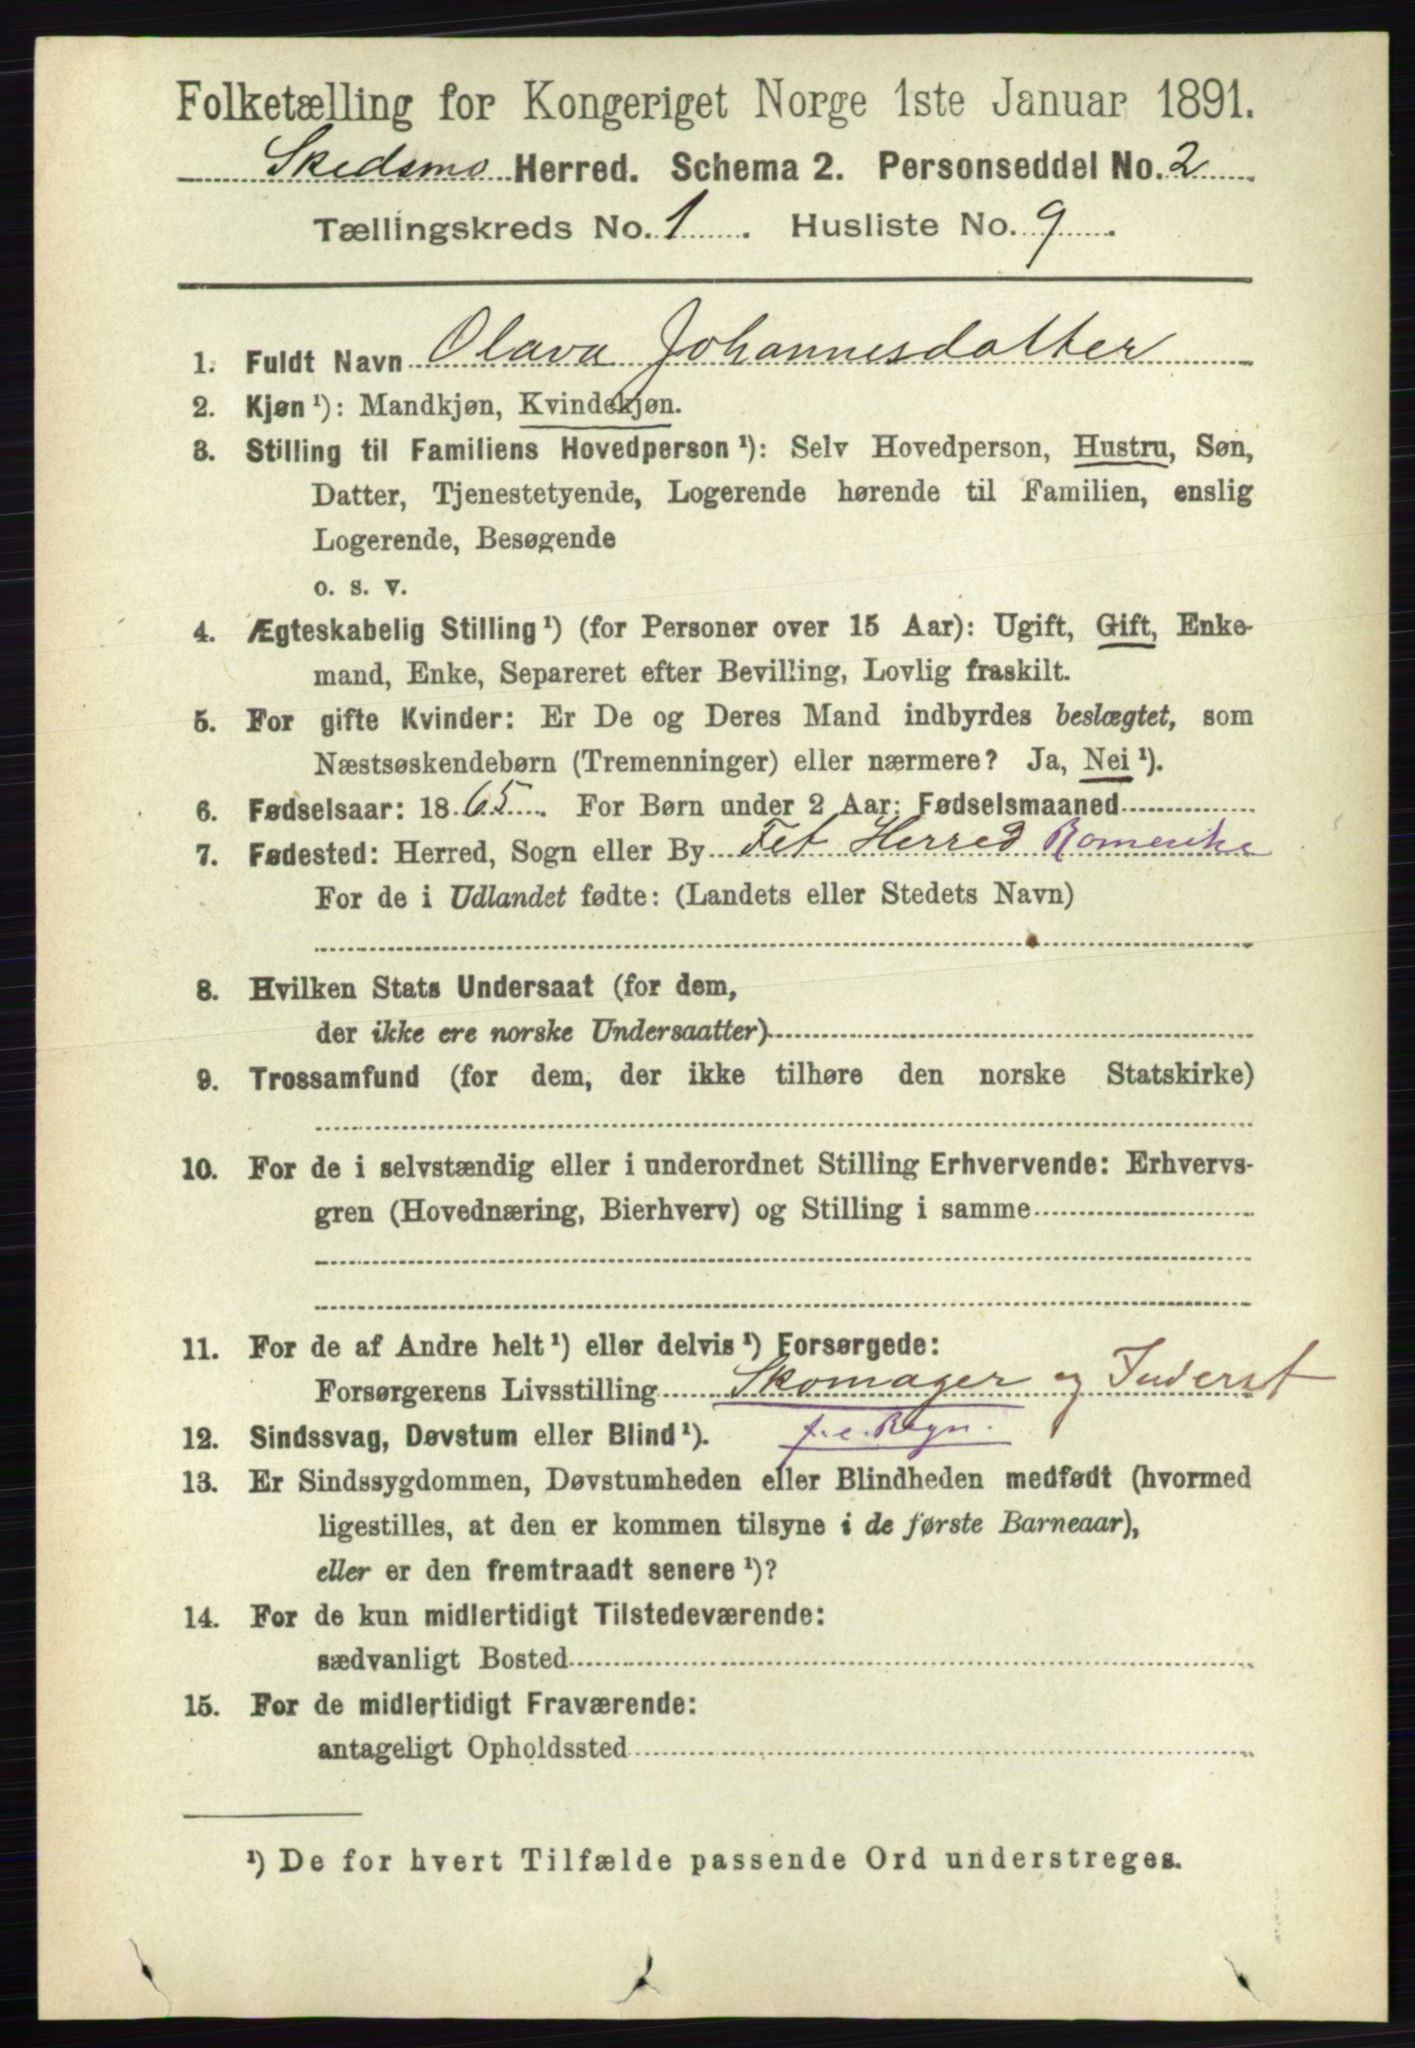 Folketælling for Kongeriget Norge 1ste Januar 1891.
Skedsmo Herred. Schema 2. Personseddel No. 2
Tællingskreds No. 1. Husliste No. 9.
1. Fuldt Navn Olava Johannesdatter
2. Kjøn¹): Mandkjøn, Kvindekjøn.
3. Stilling til Familiens Hovedperson¹): Selv Hovedperson, Hustru, Søn,
Datter, Tjenestetyende, Logerende hørende til Familien, enslig
Logerende, Besøgende
o. s. v.
4. Ægteskabelig Stilling¹) (for Personer over 15 Aar): Ugift, Gift, Enke-
mand, Enke, Separeret efter Bevilling, Lovlig fraskilt.
5. For gifte Kvinder: Er De og Deres Mand indbyrdes beslægtet, som
Næstsøskendebørn (Tremenninger) eller nærmere? Ja, Nei¹).
6. Fødselsaar: 1865. For Børn under 2 Aar: Fødselsmaaned
7. Fødested: Herred, Sogn eller By Fet Herred Romerike
For de i Udlandet fødte: (Landets eller Stedets Navn)
8. Hvilken Stats Undersaat (for dem,
der ikke ere norske Undersaatter)
9. Trossamfund (for dem, der ikke tilhøre den norske Statskirke)
10. For de i selvstændig eller i underordnet Stilling Erhvervende: Erhvervs-
gren (Hovednæring, Bierhverv) og Stilling i samme
11. For de af Andre helt¹) eller delvis¹) Forsørgede:
Forsørgerens Livsstilling Skomager og Inderst
12. Sindssvag, Døvstum eller Blind¹). f. e. Regn.
13. Er Sindssygdommen, Døvstumheden eller Blindheden medfødt (hvormed
ligestilles, at den er kommen tilsyne i de første Barneaar),
eller er den fremtraadt senere¹)?
14. For de kun midlertidigt Tilstedeværende:
sædvanligt Bosted
15. For de midlertidigt Fraværende:
antageligt Opholdssted
¹) De for hvert Tilfælde passende Ord understreges.